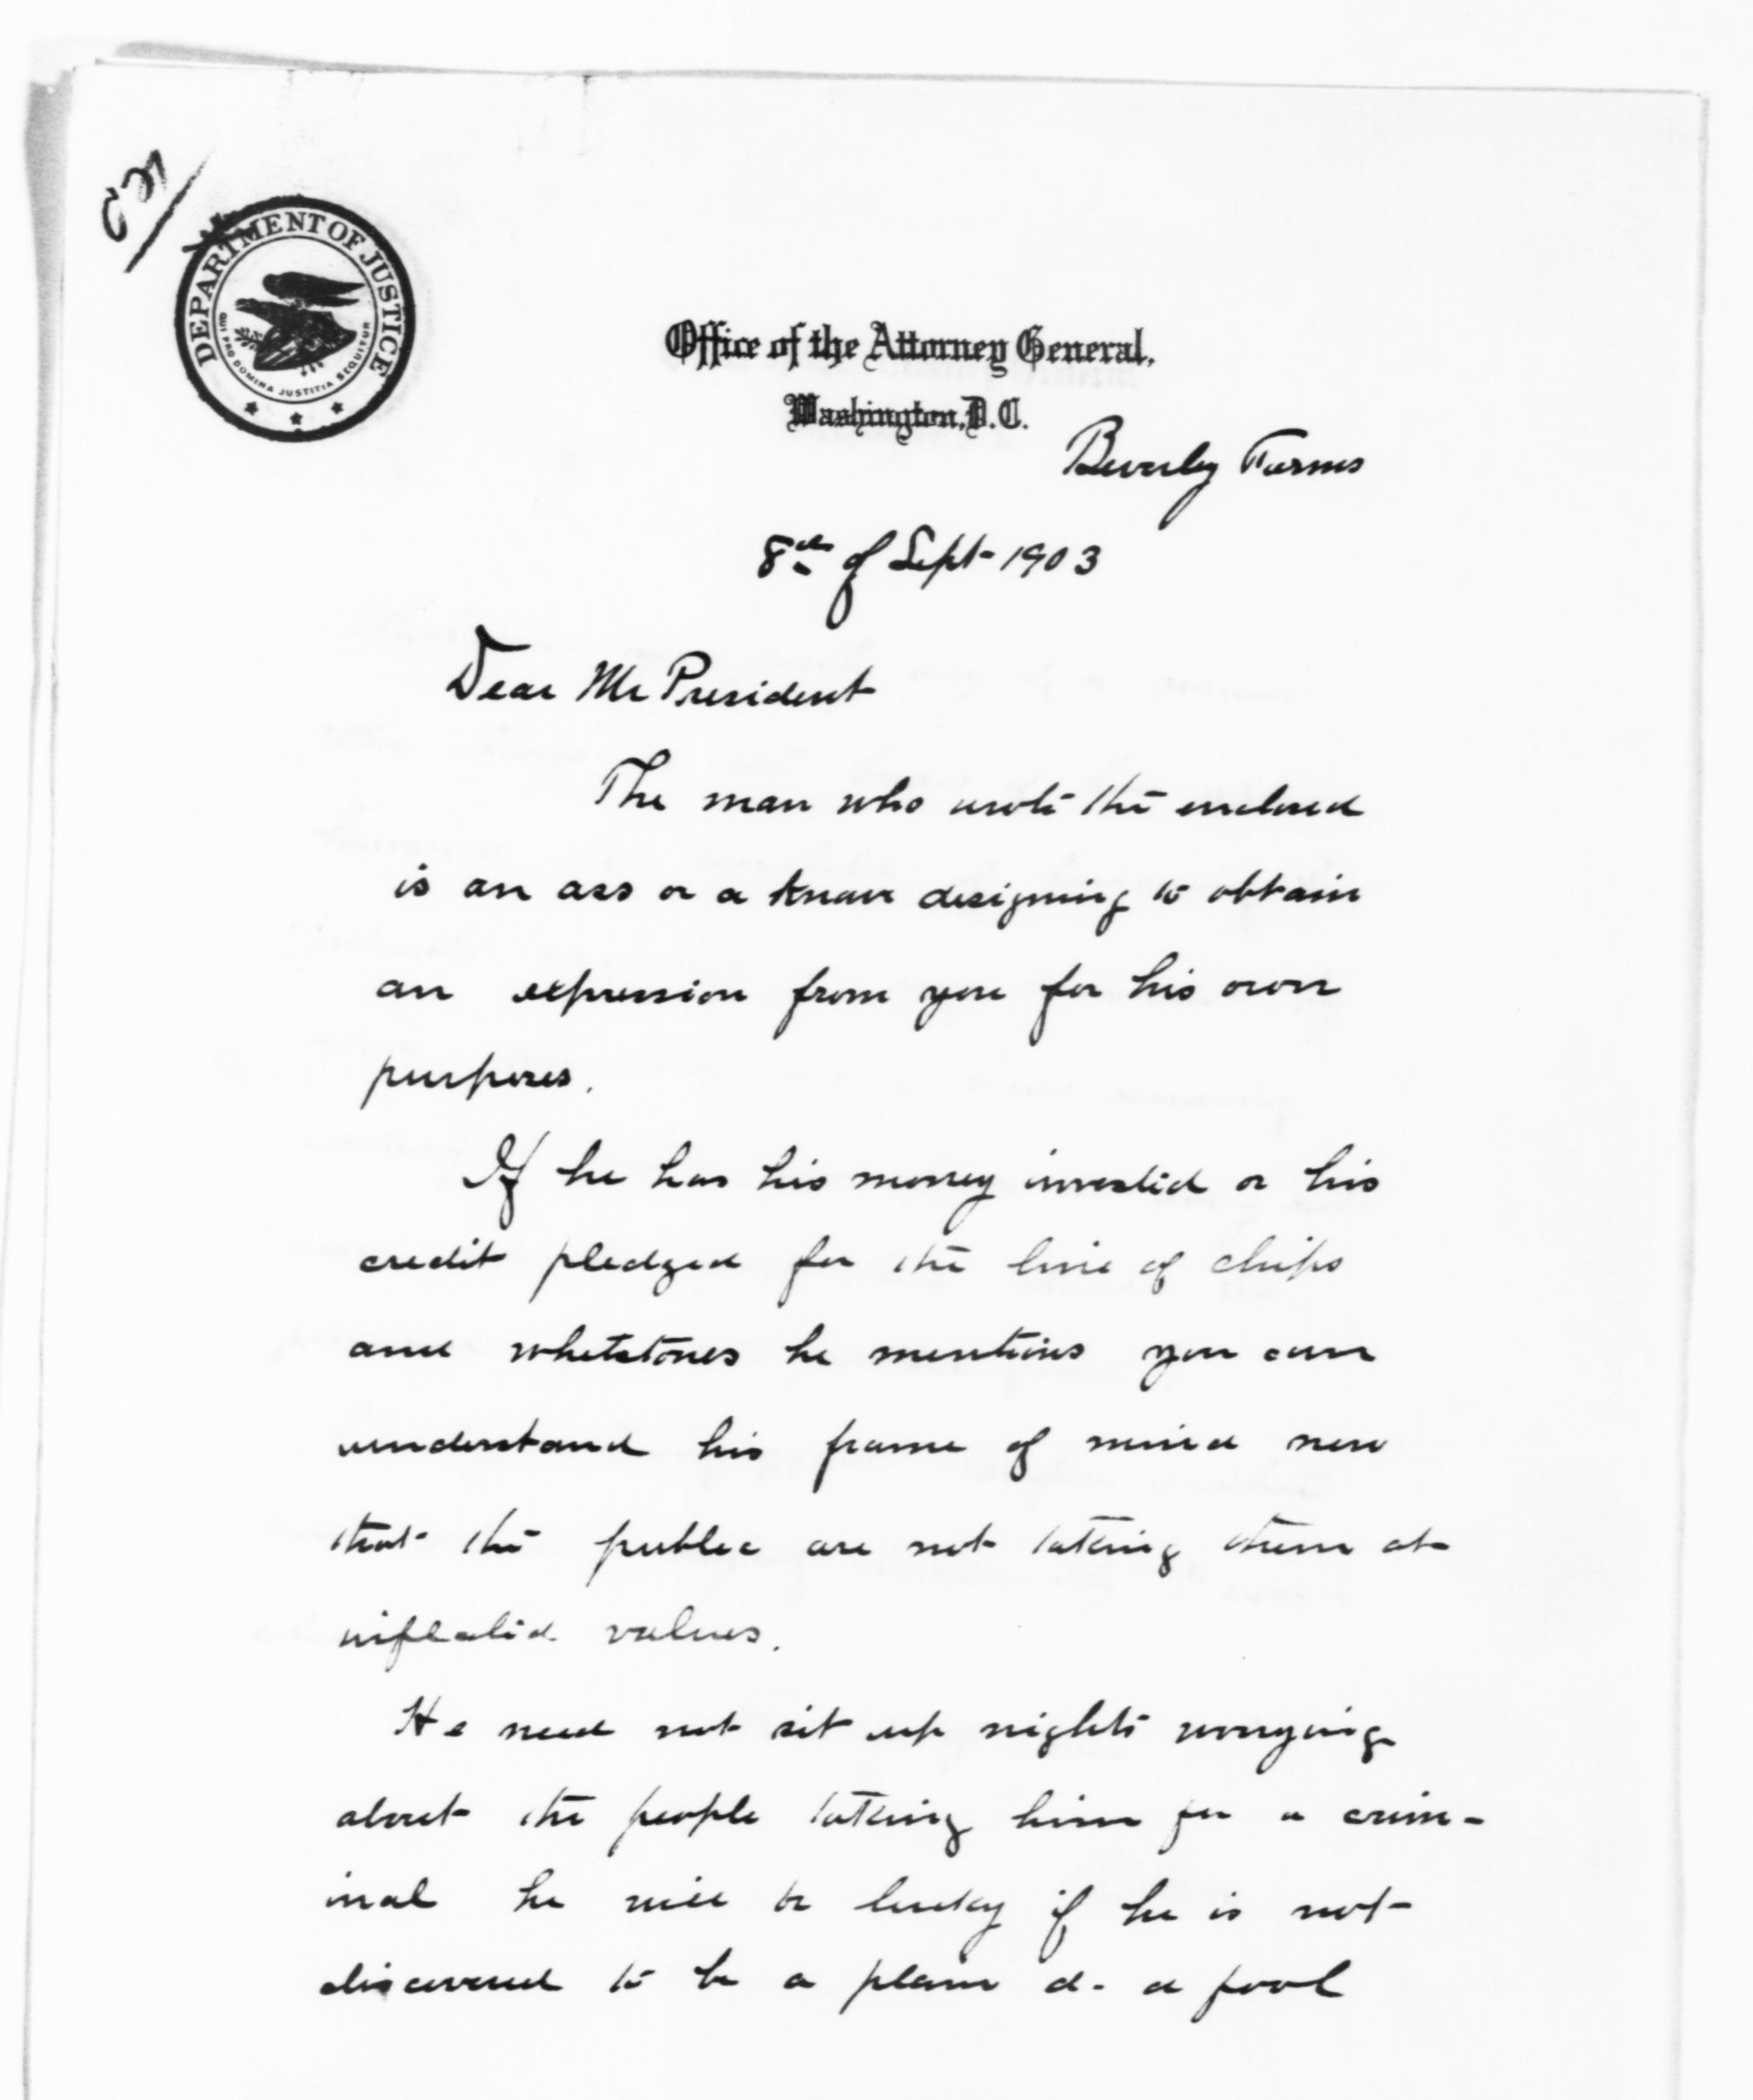 DEPARTMENT OF JUSTICE
QUI PRO DOMINA JUSTITIA SEQUITUR
Office of the Attorney General,
Washington, D.C.
Beverly Farms
8th of Sept 1903
Dear Mr President
The man who wrote the enclosed
is an ass or a knave designing to obtain
an expression from you for his own
purposes.
If he has his money invested or his
credit pledged for the line of chips
and whetstones he mentions you can
understand his frame of mind now
that the public are not taking them at
inflated values.
He need not sit up nights worrying
about the people taking him for a crim-
inal he will be lucky if he is not
discovered to be a plain d- a fool